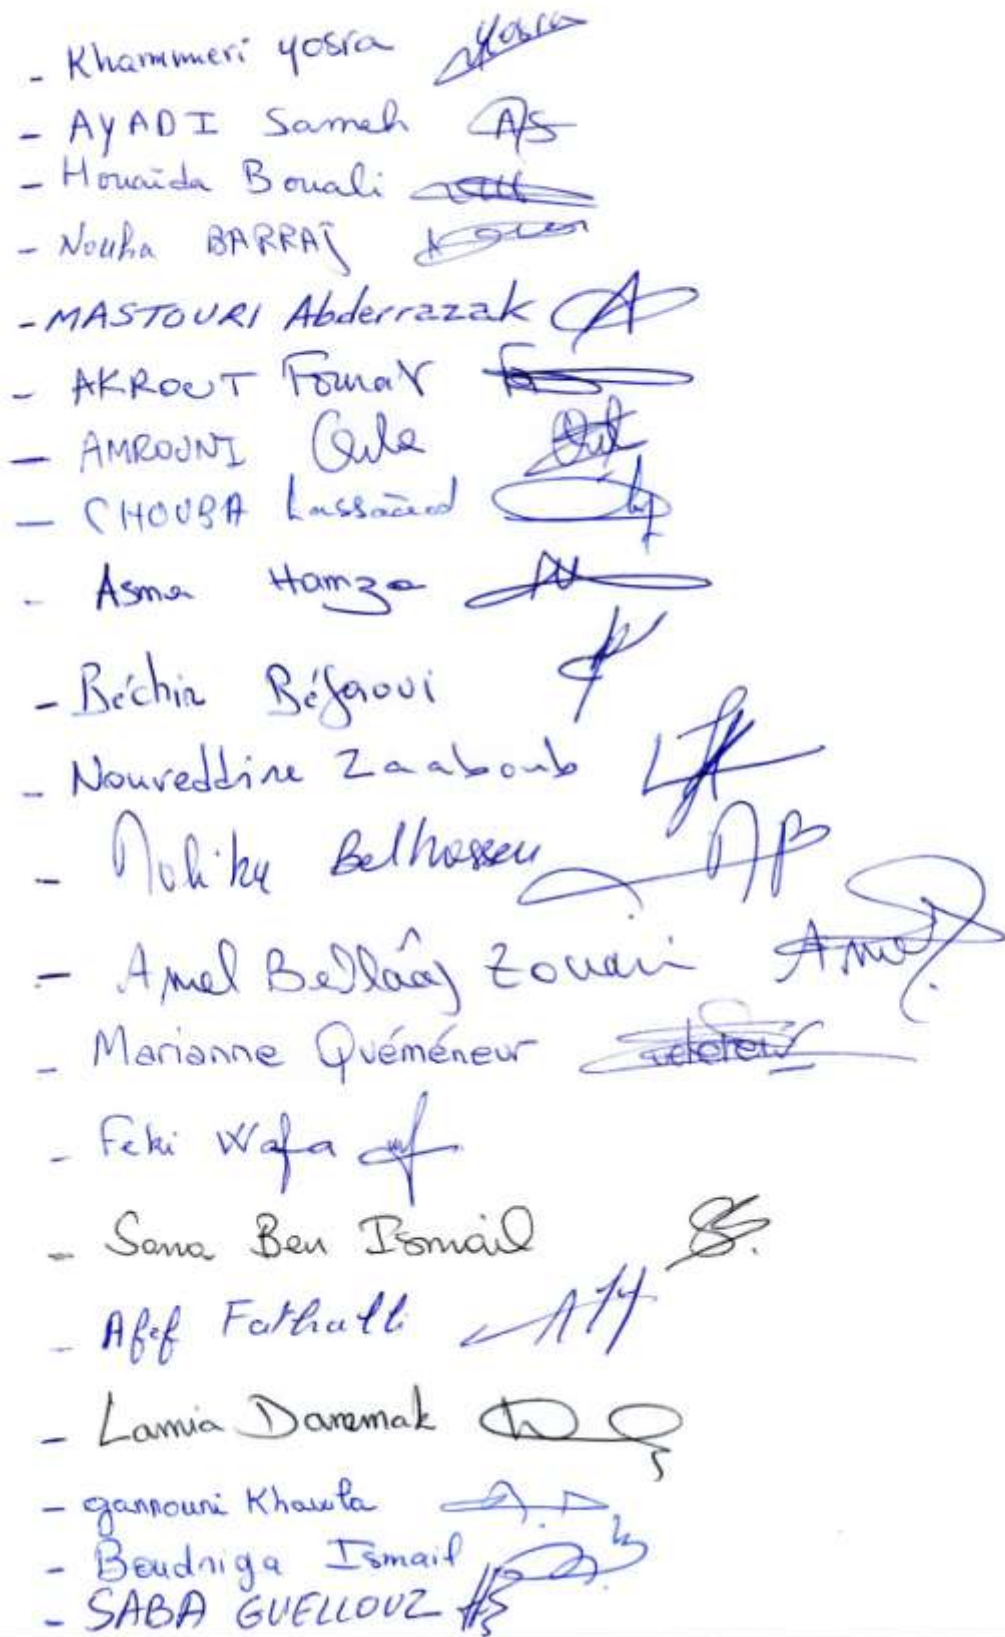 - Khammeri yosra yosra
- AYADI Sameh AS
- Houaïda Bouali
- Nouha BARRAJ
- MASTOURI Abderrazak A
- AKROUT
- AMROUNI
- CHOUBA Lassaâd
- Asma Hamza
- Béchir Béjaoui
- Noureddine Zaaboub
- Belhassen
- Amel Bellaâj Zouari Amel
- Marianne Quéméneur
- Feki Wafa
- Sana Ben Ismail
- Afef Fathalli
- Lamia
- gannouni Khawla
- Boudriga Ismail
- SABA GUELLOUZ